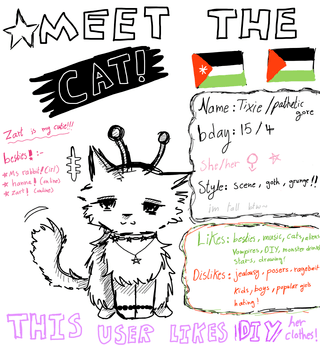 ☆MEET THE
CAT!
Name: Tixie/pathetic
gore
bday: 15/4
She/her ♀ ☆
Style: scene, goth, grunge!!
Zart is my cutie!!!
besties! :-
* Ms rabbit! (irl)
* hanna! (online)
* Zart! (online)
Likes: besties, music, cats,
Vampires, DIY, monster drinks
stars, drawing!
Dislikes: jealousy, posers, ragebait
kids, boys, popular girls
hating!
THIS USER LIKES DIY/ her
clothes!